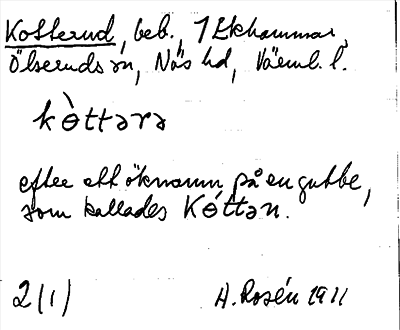 Kotterud, beb., 1 Ekhammar,
Ölseruds sn, Näs hd, Värml. l.
kòttərə
efter ett öknamn på en gubbe,
som kallades Kóttən.
2 (1) A. Rosén 1911